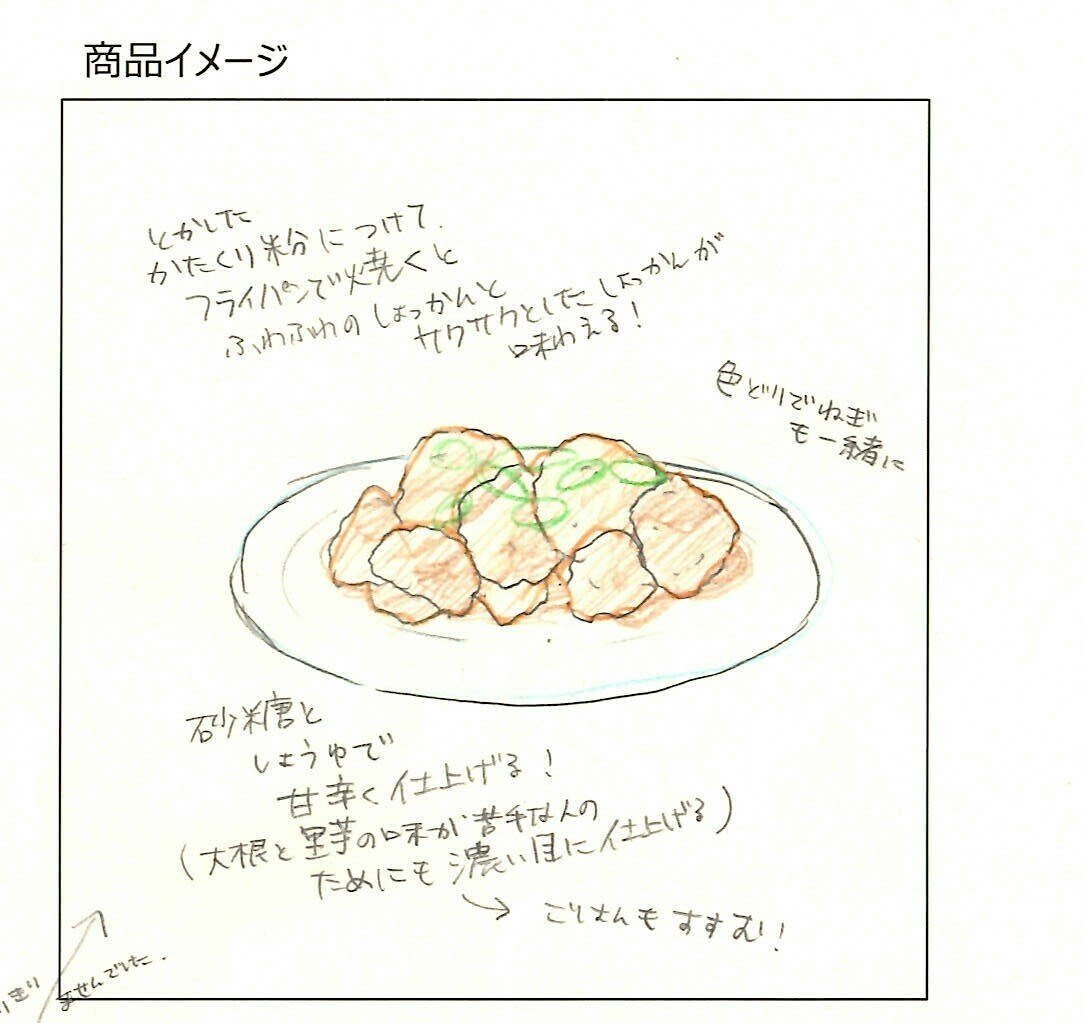 商品イメージ
とかした
かたくり粉につけて、
フライパンで焼くと
ふわふわのしょっかんと
サクサクとしたしょっかんが
味わえる!
色どりでねぎ
も一緒に
砂糖と
しょうゆで
甘辛く仕上げる!
(大根と里芋の味が苦手な人の
ためにも濃い目に仕上げる)
→ ごはんもすすむ!
きり
ませんでした.